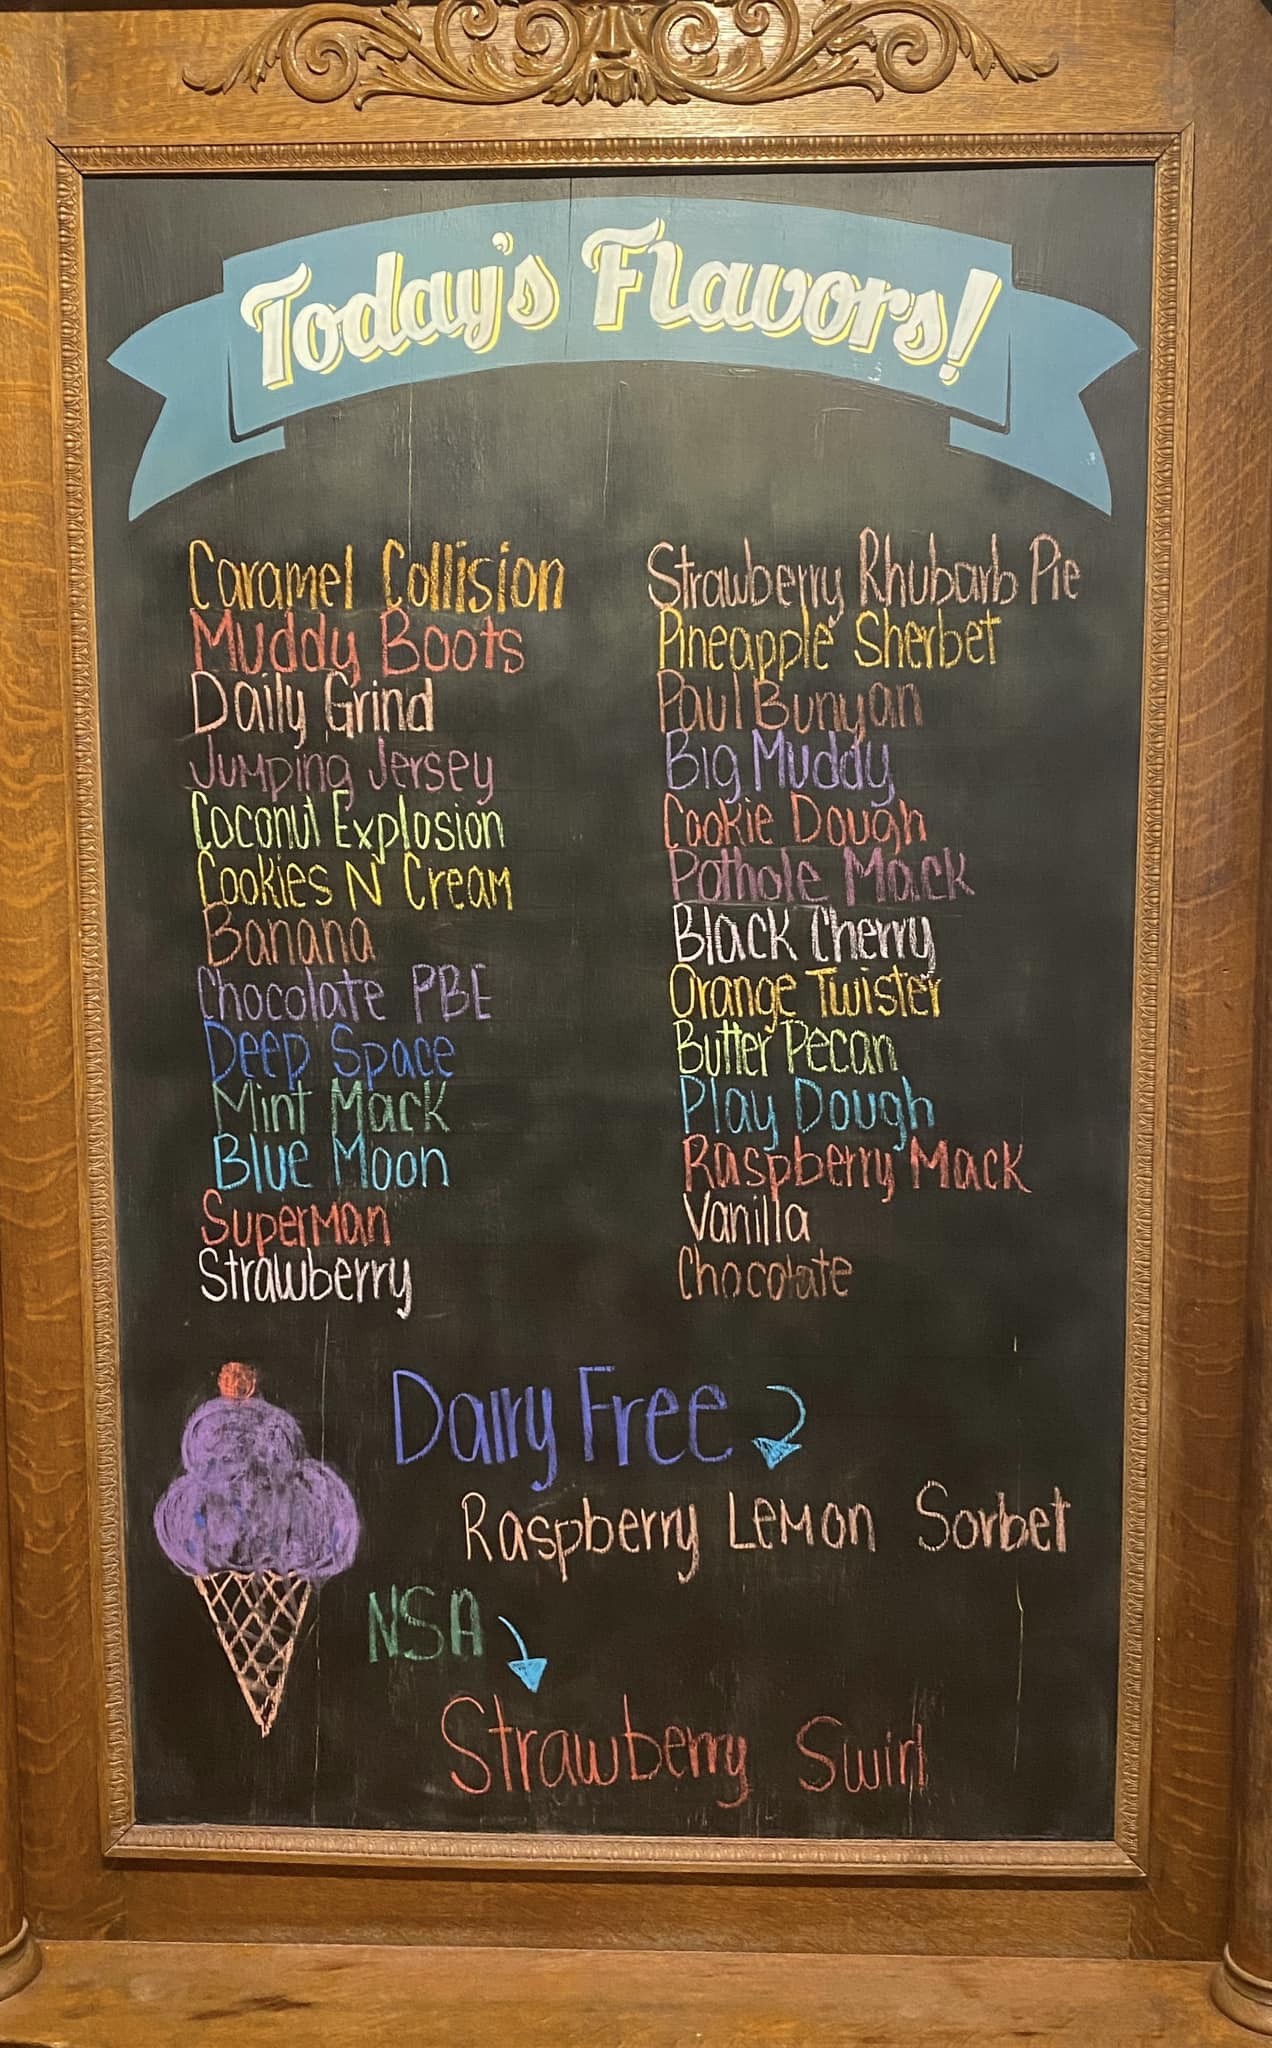 Today's Flavors!
Caramel Collision
Muddy Boots
Daily Grind
Jumping Jersey
Coconut Explosion
Cookies N' Cream
Banana
Chocolate PBE
Deep Space
Mint Mack
Blue Moon
Superman
Strawberry
Strawberry Rhubarb Pie
Pineapple Sherbet
Paul Bunyan
Big Muddy
Cookie Dough
Pothole Mack
Black Cherry
Orange Twister
Butter Pecan
Play Dough
Raspberry Mack
Vanilla
Chocolate
Dairy Free
Raspberry Lemon Sorbet
NSA
Strawberry Swirl